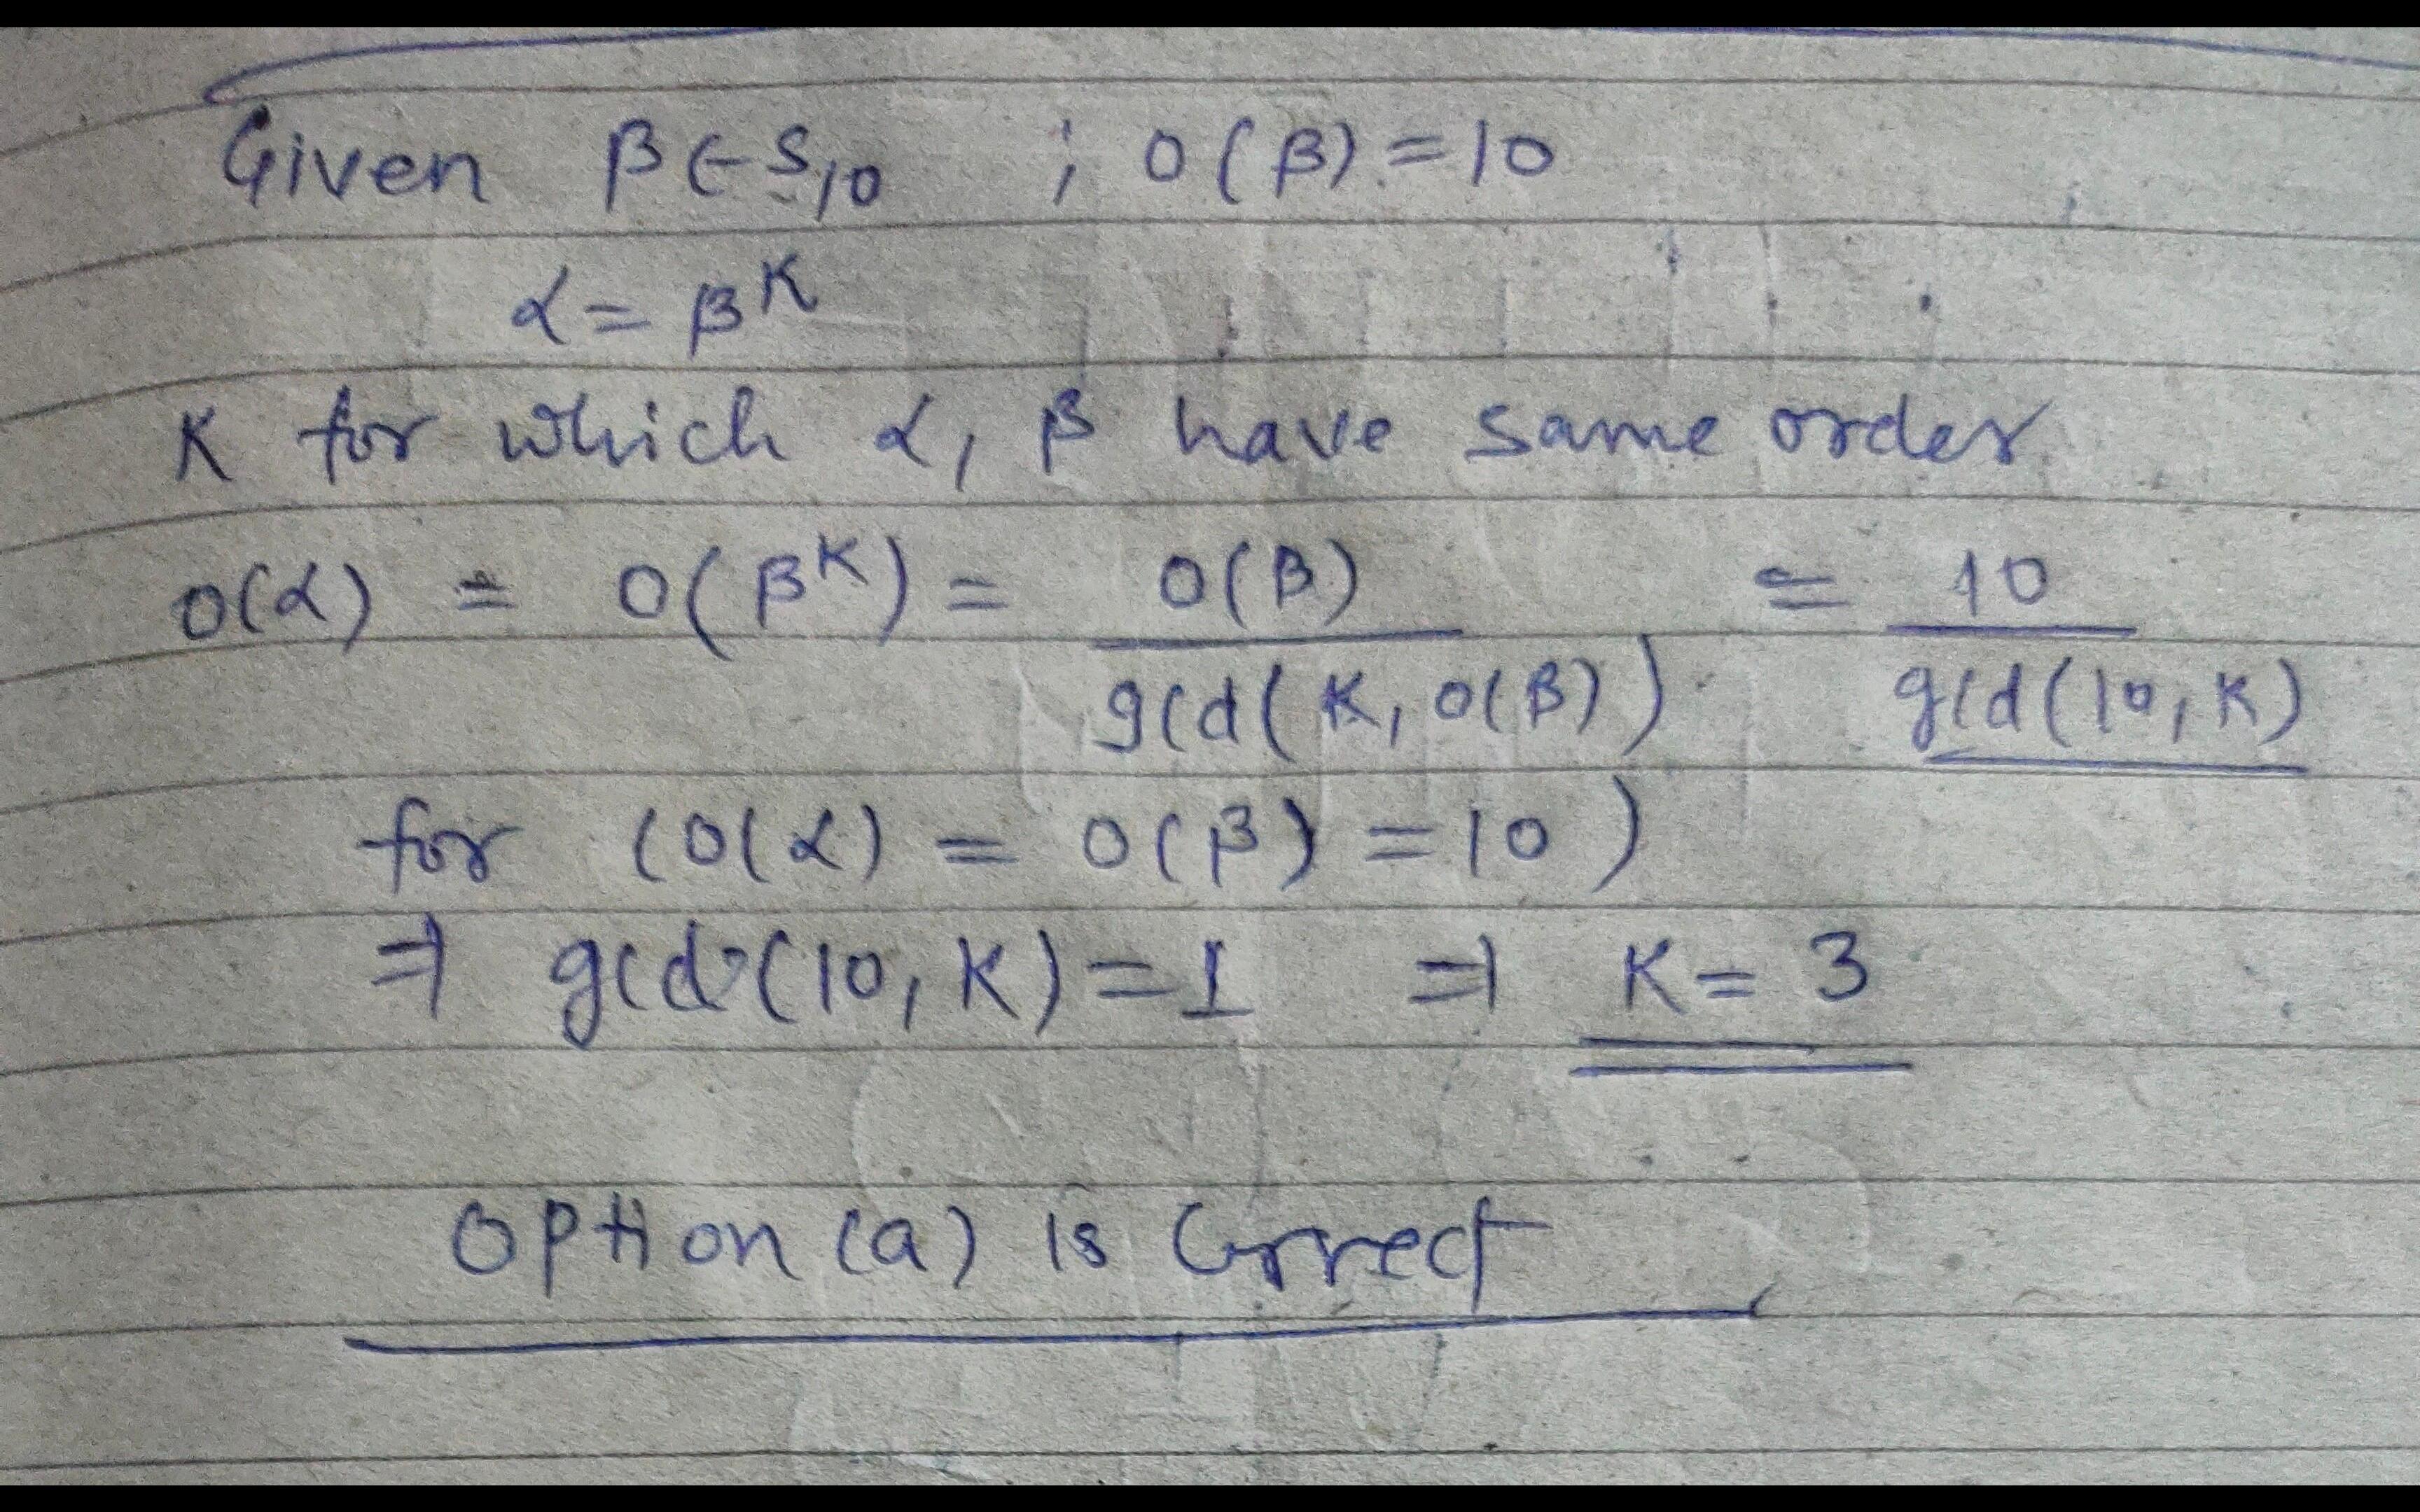 Given β ∈ S₁₀ ; O(β) = 10
α = β^K
K for which α, β have same order
O(α) = O(β^K) = O(β) / gcd(K, O(β)) = 10 / gcd(10, K)
for (O(α) = O(β) = 10)
⇒ gcd(10, K) = 1 ⇒ K = 3
Option (a) is Correct